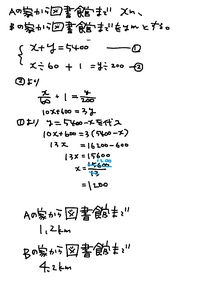 Aの家から図書館まで xm、
Bの家から図書館までをymとする。
x+y=5400 ―①
x÷60+1=y÷200 ―②
②より
x/60+1=y/200
10x+600=3y
①より y=5400-xを代入
10x+600=3(5400-x)
13x=16200-600
13x=15600
x=15600/13
=1200
Aの家から図書館まで
1.2km
Bの家から図書館まで
4.2km